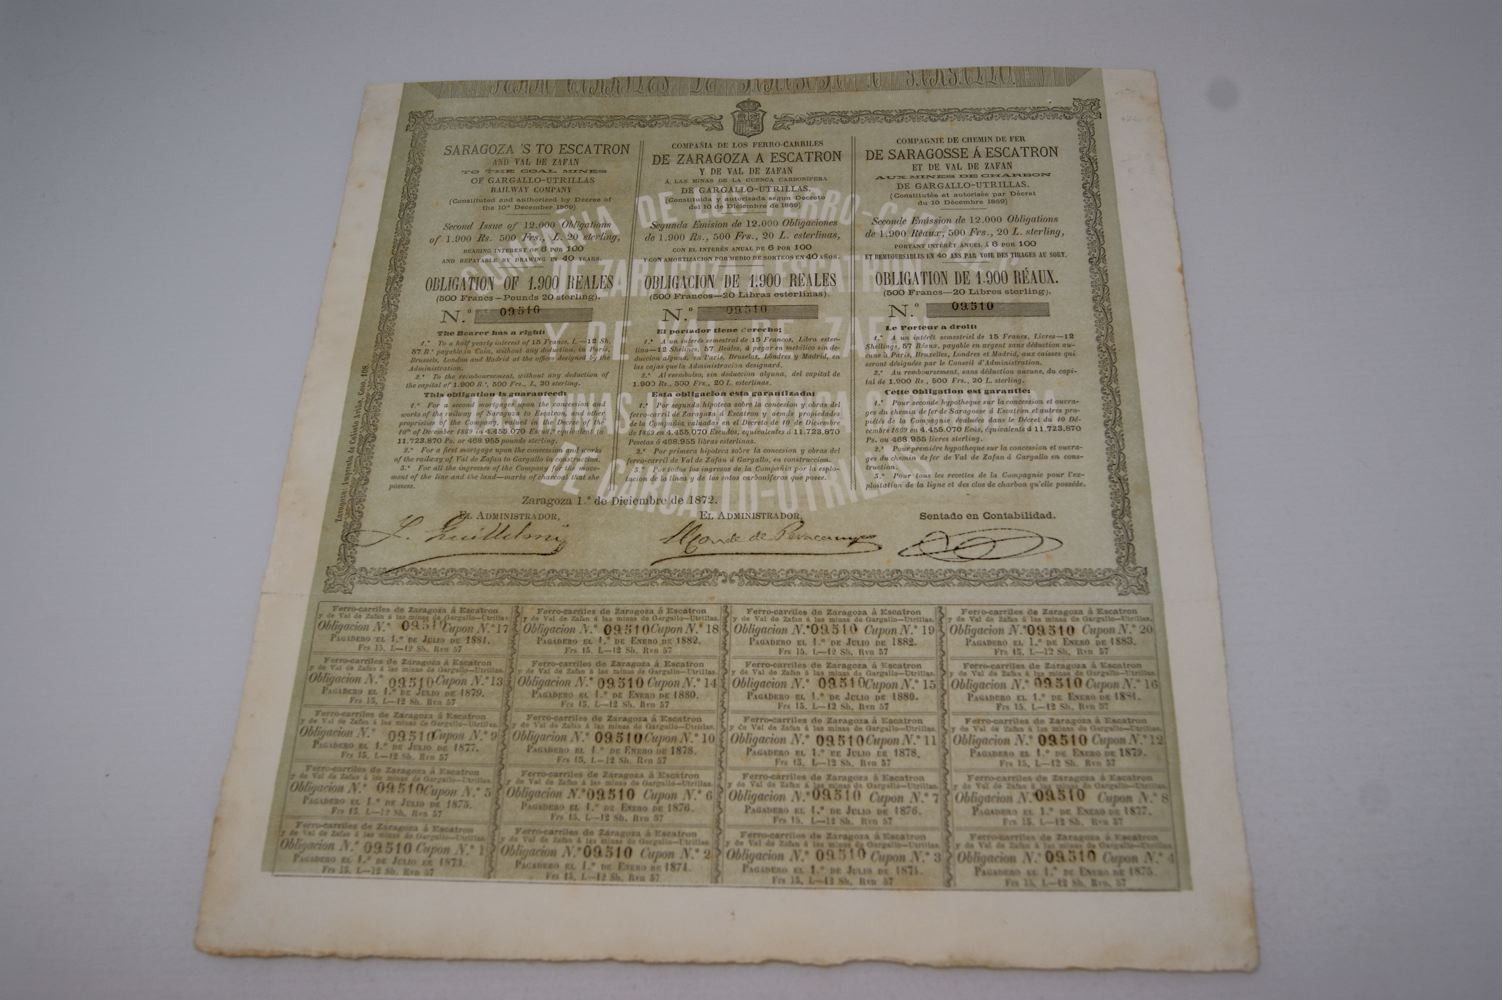 SARAGOZA 'S TO ESCATRON
AND VAL DE ZAFAN
TO THE COAL MINES
OF GARGALLO-UTRILLAS
RAILWAY COMPANY
(Constituted and authorized by Decree of
the 10th December 1869)
Second Issue of 12.000 Obligations
of 1.900 Rs. 500 Frs., L. 20 sterling,
BEARING INTEREST OF 6 POR 100
AND REPAYABLE BY DRAWING IN 40 YEARS.
OBLIGATION OF 1.900 REALES
(500 Francs—Pounds 20 sterling).
N.º 09510
The Bearer has a right:
1.º To a half yearly interest of 15 Francs, L.—12 Sh.
57 R.s payable in Coin, without any deduction, in Paris,
Brussels, London and Madrid at the office designed by the
Administration.
2.º To the reimboursement, without any deduction of
the capital of 1.900 R.s, 500 Frs., L. 20 sterling.
This obligation is guaranteed:
1.º For a second mortgage upon the concession and
works of the railway of Saragoza to Escatron, and other
propricties of the Company valued in the Decree of the
10th of December 1869 in 4.455.070 Es.
11.723.870 Ps. or 468.955 pounds sterling.
2.º For a first mortgage upon the concession and works
of the railway of Val de Zafan á Gargallo, in construction.
3.º For all the ingresses of the Company for the
ment of the line and the land—marks of charcoal that she
possess.
COMPAÑIA DE LOS FERRO-CARRILES
DE ZARAGOZA A ESCATRON
Y DE VAL DE ZAFAN
Á LAS MINAS DE LA CUENCA CARBONÍFERA
DE GARGALLO-UTRILLAS.
(Constituida y autorizada segun Decreto
del 10 de Diciembre de 1869)
Segunda Emision de 12.000 Obligaciones
de 1.900 Rs., 500 Frs., 20 L. esterlinas,
CON EL INTERÉS ANUAL DE 6 POR 100
Y CON AMORTIZACION POR MEDIO DE SORTEOS EN 40 AÑOS.
OBLIGACION DE 1.900 REALES
(500 Francos—20 Libras esterlinas).
N.º 09510
El portador tiene derecho:
1.º A un interés semestral de 15 Francos, Libra ester-
lina—12 Shelines, 57 Reales, á pagar en metálico sin de-
duccion alguna, en Paris, Bruselas, Lóndres y Madrid, en
las cajas que la Administracion designará.
2.º Al reembolso, sin deduccion alguna, del capital de
1.900 Rs., 500 Frs., 20 L. esterlinas.
Esta obligacion está garantizada:
1.º Por segunda hipoteca sobre la concesion y obras del
ferro-carril de Zaragoza á Escatron y demás propiedades
de la Compañía valuadas en el Decreto de 10 de Diciembre
de 1869 en 4.455.070 Escudos, equivalentes á 11.723.870
Pesetas ó 468.955 libras esterlinas.
2.º Por primera hipoteca sobre la concesion y obras del
ferro-carril de Val de Zafan á Gargallo, en construccion.
3.º Por todos los ingresos de la Compañía por la esplo-
tacion de la línea y de los cotos carboníferos que posee.
COMPAGNIE DE CHEMIN DE FER
DE SARAGOSSE Á ESCATRON
ET DE VAL DE ZAFAN
AUX MINES DE CHARBON
DE GARGALLO-UTRILLAS.
(Constituée et autorisée par Décret
du 10 Décembre 1869)
Seconde Emission de 12.000 Obligations
de 1.900 Réaux, 500 Frs., 20 L. sterling,
PORTANT INTÉRÉT ANUEL Á 6 POR 100
ET REMBOURSABLES EN 40 ANS PAR VOIE DES TIRAGES AU SORT.
OBLIGATION DE 1.900 RÉAUX.
(500 Francs—20 Libros sterling).
N.º 09510
Le Porteur a droit:
1.º A un intérét semestriel de 15 Francs, Livres—12
Shellings, 57 Réaux, payable en argent sans déduction au-
cune à Paris, Bruxelles, Londres et Madrid, aux caisses qui
seront désignées par le Conseil d'Administration.
2.º Au remboursement, sans déduction aucune, du capi-
tal de 1.900 Rs., 500 Frs., 20 L. sterling.
Cette Obligation est garantie:
1.º Pour seconde hypotheque sur la concession et ouvra-
ges du chemin de fer de Saragosse á Escatron et autres pro-
priétés de la Compagnie évaluées dans le Décret du 10 Dé-
cembre 1869 en 4.455.070 Ecus, équivalents á 11.723.870
Ps. ou 468.955 livres sterling.
2.º Pour première hypotheque sur la concession et ouvra-
ges du chemin de fer de Val de Zafan á Gargallo, en cons-
truction.
3.º Pour toutes les recettes de la Compagnie pour l'ex-
ploitation de la ligne et des clos de charbon qu'elle possède.
COMPAÑIA DE LOS FERRO-C
DE ZARAGOZA A ESCATRON
Y DE VAL DE ZAFAN
DE GARGALLO-UTRILLAS
Zaragoza 1.º de Diciembre de 1872.
EL ADMINISTRADOR,
EL ADMINISTRADOR,
Sentado en Contabilidad.
Ferro-carriles de Zaragoza á Escatron
y de Val de Zafan á las minas de Gargallo—Utrillas.
Obligacion N.º 09510 Cupon N.º 17
PAGADERO EL 1.º DE JULIO DE 1881.
Frs 15, L—12 Sh, Rvn 57
Ferro-carriles de Zaragoza á Escatron
y de Val de Zafan á las minas de Gargallo—Utrillas.
Obligacion N.º 09510 Cupon N.º 18
PAGADERO EL 1.º DE ENERO DE 1882.
Frs 15, L—12 Sh, Rvn 57
Ferro-carriles de Zaragoza á Escatron
y de Val de Zafan á las minas de Gargallo—Utrillas.
Obligacion N.º 09510 Cupon N.º 19
PAGADERO EL 1.º DE JULIO DE 1882.
Frs 15, L—12 Sh, Rvn 57
Ferro-carriles de Zaragoza á Escatron
y de Val de Zafan á las minas de Gargallo—Utrillas.
Obligacion N.º 09510 Cupon N.º 20
PAGADERO EL 1.º DE ENERO DE 1883.
Frs 15, L—12 Sh, Rvn 57
Ferro-carriles de Zaragoza á Escatron
y de Val de Zafan á las minas de Gargallo—Utrillas.
Obligacion N.º 09510 Cupon N.º 13
PAGADERO EL 1.º DE JULIO DE 1879.
Frs 15, L—12 Sh, Rvn 57
Ferro-carriles de Zaragoza á Escatron
y de Val de Zafan á las minas de Gargallo—Utrillas.
Obligacion N.º 09510 Cupon N.º 14
PAGADERO EL 1.º DE ENERO DE 1880.
Frs 15, L—12 Sh, Rvn 57
Ferro-carriles de Zaragoza á Escatron
y de Val de Zafan á las minas de Gargallo—Utrillas.
Obligacion N.º 09510 Cupon N.º 15
PAGADERO EL 1.º DE JULIO DE 1880.
Frs 15, L—12 Sh, Rvn 57
Ferro-carriles de Zaragoza á Escatron
y de Val de Zafan á las minas de Gargallo—Utrillas.
Obligacion N.º 09510 Cupon N.º 16
PAGADERO EL 1.º DE ENERO DE 1881.
Frs 15, L—12 Sh, Rvn 57
Ferro-carriles de Zaragoza á Escatron
y de Val de Zafan á las minas de Gargallo—Utrillas.
Obligacion N.º 09510 Cupon N.º 9
PAGADERO EL 1.º DE JULIO DE 1877.
Frs 15, L—12 Sh, Rvn 57
Ferro-carriles de Zaragoza á Escatron
y de Val de Zafan á las minas de Gargallo—Utrillas.
Obligacion N.º 09510 Cupon N.º 10
PAGADERO EL 1.º DE ENERO DE 1878.
Frs 15, L—12 Sh, Rvn 57
Ferro-carriles de Zaragoza á Escatron
y de Val de Zafan á las minas de Gargallo—Utrillas.
Obligacion N.º 09510 Cupon N.º 11
PAGADERO EL 1.º DE JULIO DE 1878.
Frs 15, L—12 Sh, Rvn 57
Ferro-carriles de Zaragoza á Escatron
y de Val de Zafan á las minas de Gargallo—Utrillas.
Obligacion N.º 09510 Cupon N.º 12
PAGADERO EL 1.º DE ENERO DE 1879.
Frs 15, L—12 Sh, Rvn 57
Ferro-carriles de Zaragoza á Escatron
y de Val de Zafan á las minas de Gargallo—Utrillas.
Obligacion N.º 09510 Cupon N.º 5
PAGADERO EL 1.º DE JULIO DE 1875.
Frs 15, L—12 Sh, Rvn 57
Ferro-carriles de Zaragoza á Escatron
y de Val de Zafan á las minas de Gargallo—Utrillas.
Obligacion N.º 09510 Cupon N.º 6
PAGADERO EL 1.º DE ENERO DE 1876.
Frs 15, L—12 Sh, Rvn 57
Ferro-carriles de Zaragoza á Escatron
y de Val de Zafan á las minas de Gargallo—Utrillas.
Obligacion N.º 09510 Cupon N.º 7
PAGADERO EL 1.º DE JULIO DE 1876.
Frs 15, L—12 Sh, Rvn 57
Ferro-carriles de Zaragoza á Escatron
y de Val de Zafan á las minas de Gargallo—Utrillas.
Obligacion N.º 09510 Cupon N.º 8
PAGADERO EL 1.º DE ENERO DE 1877.
Frs 15, L—12 Sh, Rvn 57
Ferro-carriles de Zaragoza á Escatron
y de Val de Zafan á las minas de Gargallo—Utrillas.
Obligacion N.º 09510 Cupon N.º 1
PAGADERO EL 1.º DE JULIO DE 1873.
Frs 15, L—12 Sh, Rvn 57
Ferro-carriles de Zaragoza á Escatron
y de Val de Zafan á las minas de Gargallo—Utrillas.
Obligacion N.º 09510 Cupon N.º 2
PAGADERO EL 1.º DE ENERO DE 1874.
Frs 15, L—12 Sh, Rvn 57
Ferro-carriles de Zaragoza á Escatron
y de Val de Zafan á las minas de Gargallo—Utrillas.
Obligacion N.º 09510 Cupon N.º 3
PAGADERO EL 1.º DE JULIO DE 1874.
Frs 15, L—12 Sh, Rvn 57
Ferro-carriles de Zaragoza á Escatron
y de Val de Zafan á las minas de Gargallo—Utrillas.
Obligacion N.º 09510 Cupon N.º 4
PAGADERO EL 1.º DE ENERO DE 1875.
Frs 15, L—12 Sh, Rvn 57